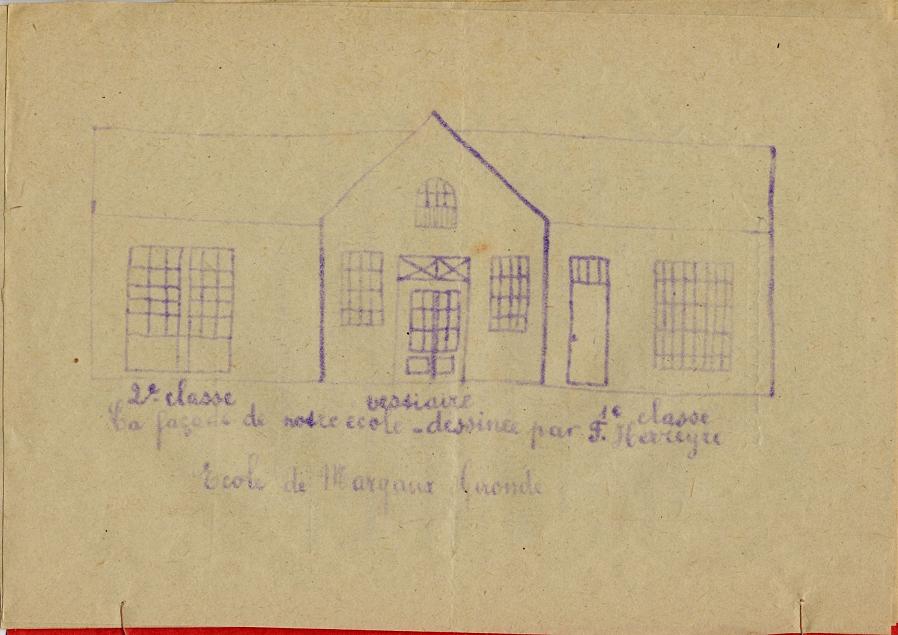 2e classe vessiaire 1e classe
La façade de notre école - dessinée par F. Herreyre
Ecole de Margaux Gironde